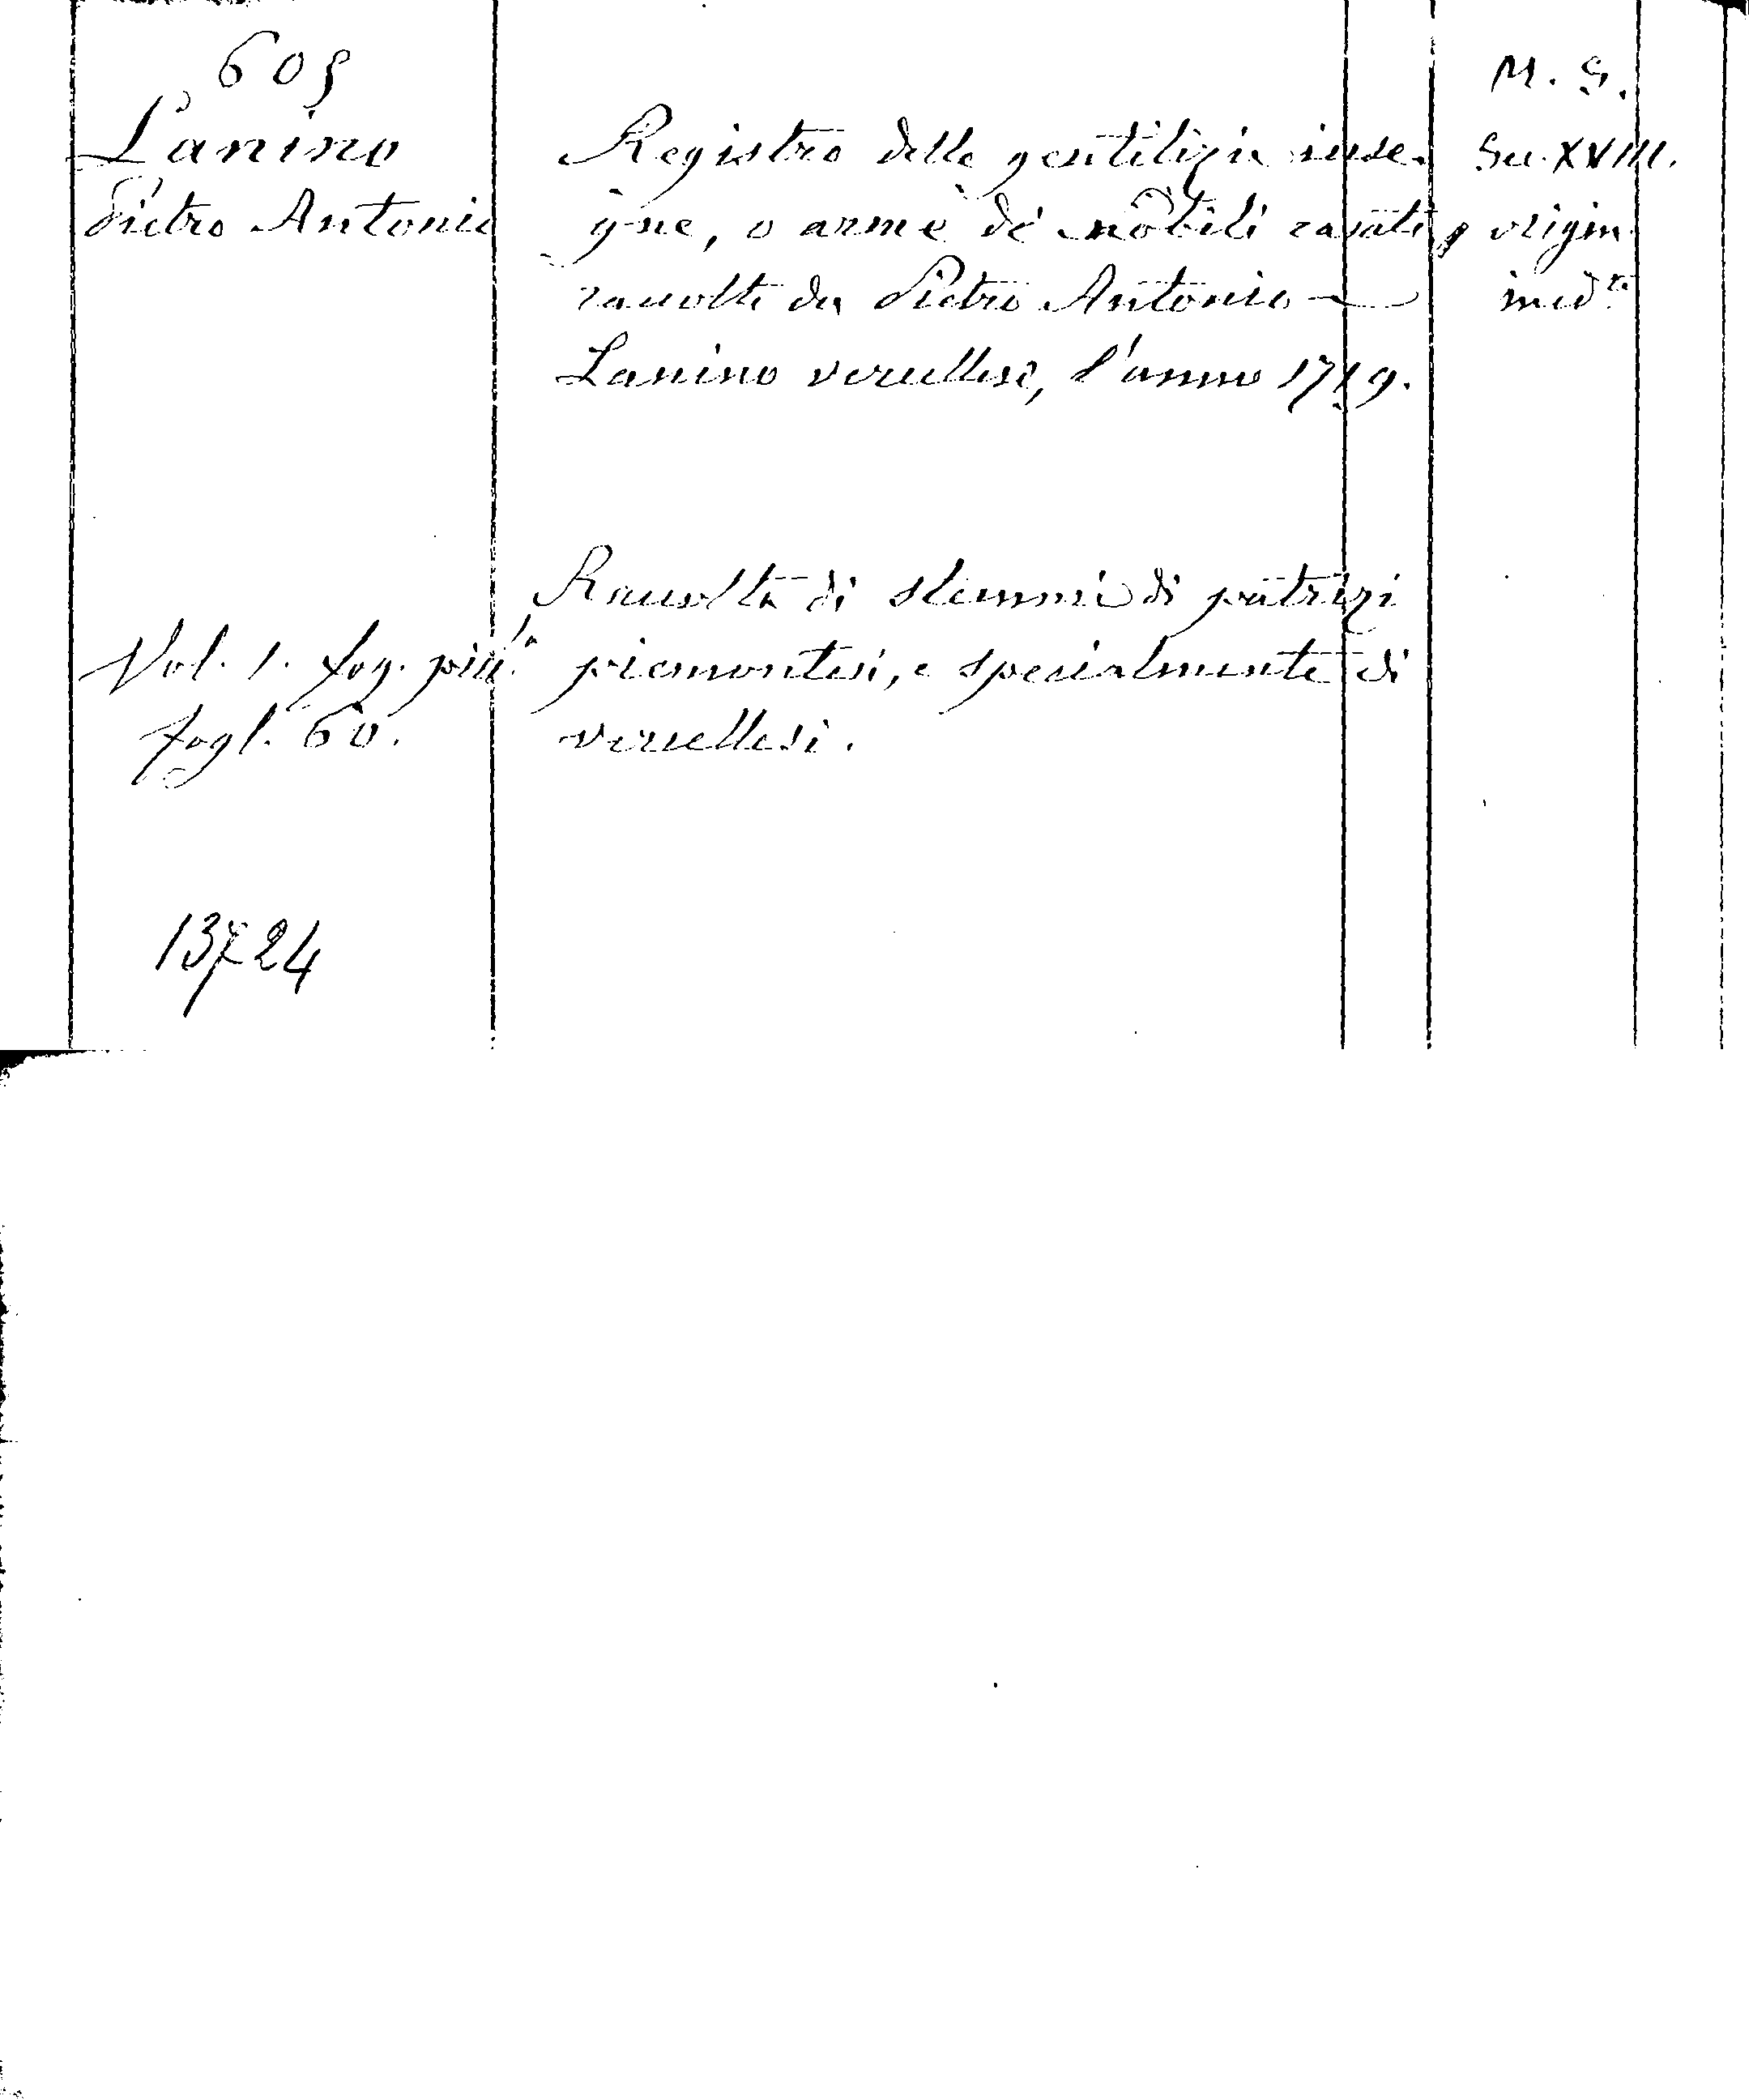 605
Lanino
Pietro Antonio
Registro delle gentilizie inse-
gne, o arme de' nobili casati,
raccolte da Pietro Antonio
Lanino vercellese, l'anno
M. S.
Sec. XVIII.
origin.
ined.to
Raccolta di stemmi di patrizi
piemontesi, e specialmente di
vercellesi.
Vol. 1. fog. picc.lo
fogl. 60.
13724